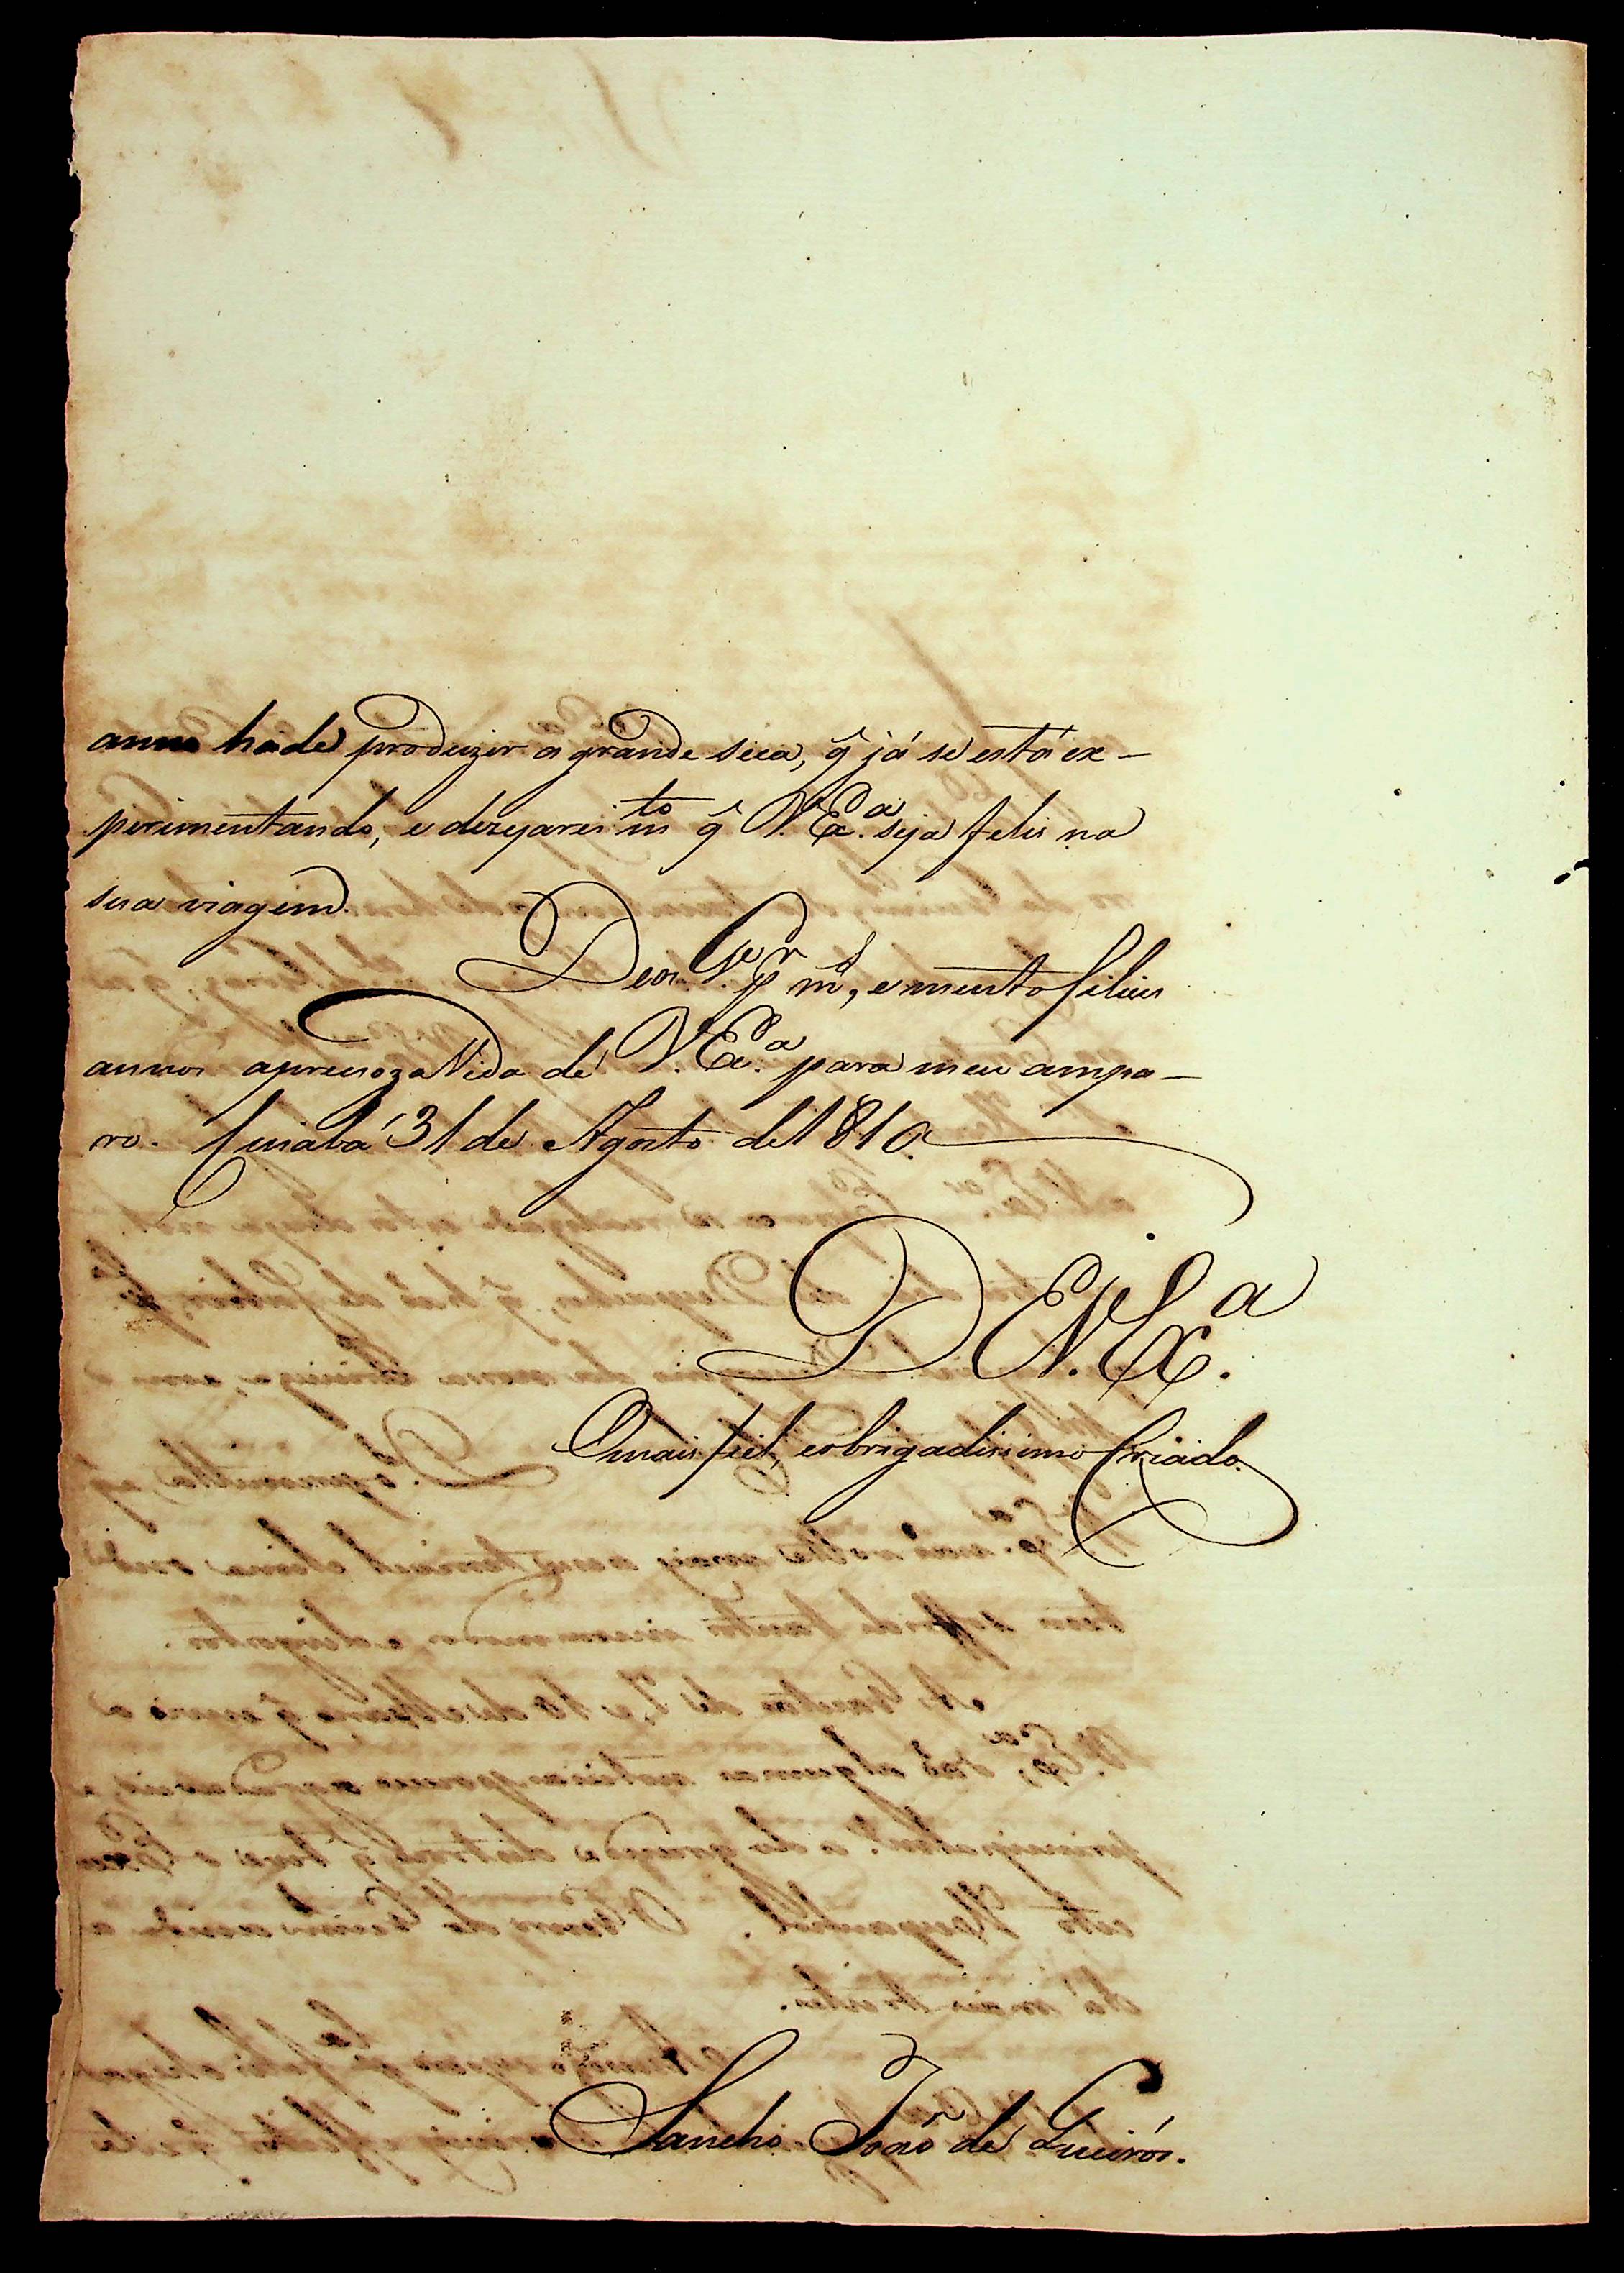 anno hade produzir a grande seca, q̃ já se está ex-
perimentando, e dezejarei m.to q̃ V. Ex.a seja felis na
sua viagem.
Deos G.e p.r m.s, e muito felices
annos a precioza Vida de V. Ex.a para meu ampa-
ro. Cuiabá 31 de Agosto de 1810.
D E V. Ex.a
O mais fiel, e obrigadissimo Criado.
Sancho João de Queirós.